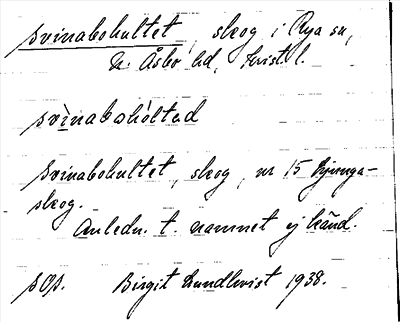 Svinabohultet, skog i Rya sn,
N. Åsbo hd, Krist. l.
svìnabohòltad
Svinabohultet, skog, nr 15 Ljunga-
skog.
Anledn. t. namnet ej känd.
Birgit Lundkvist 1938.